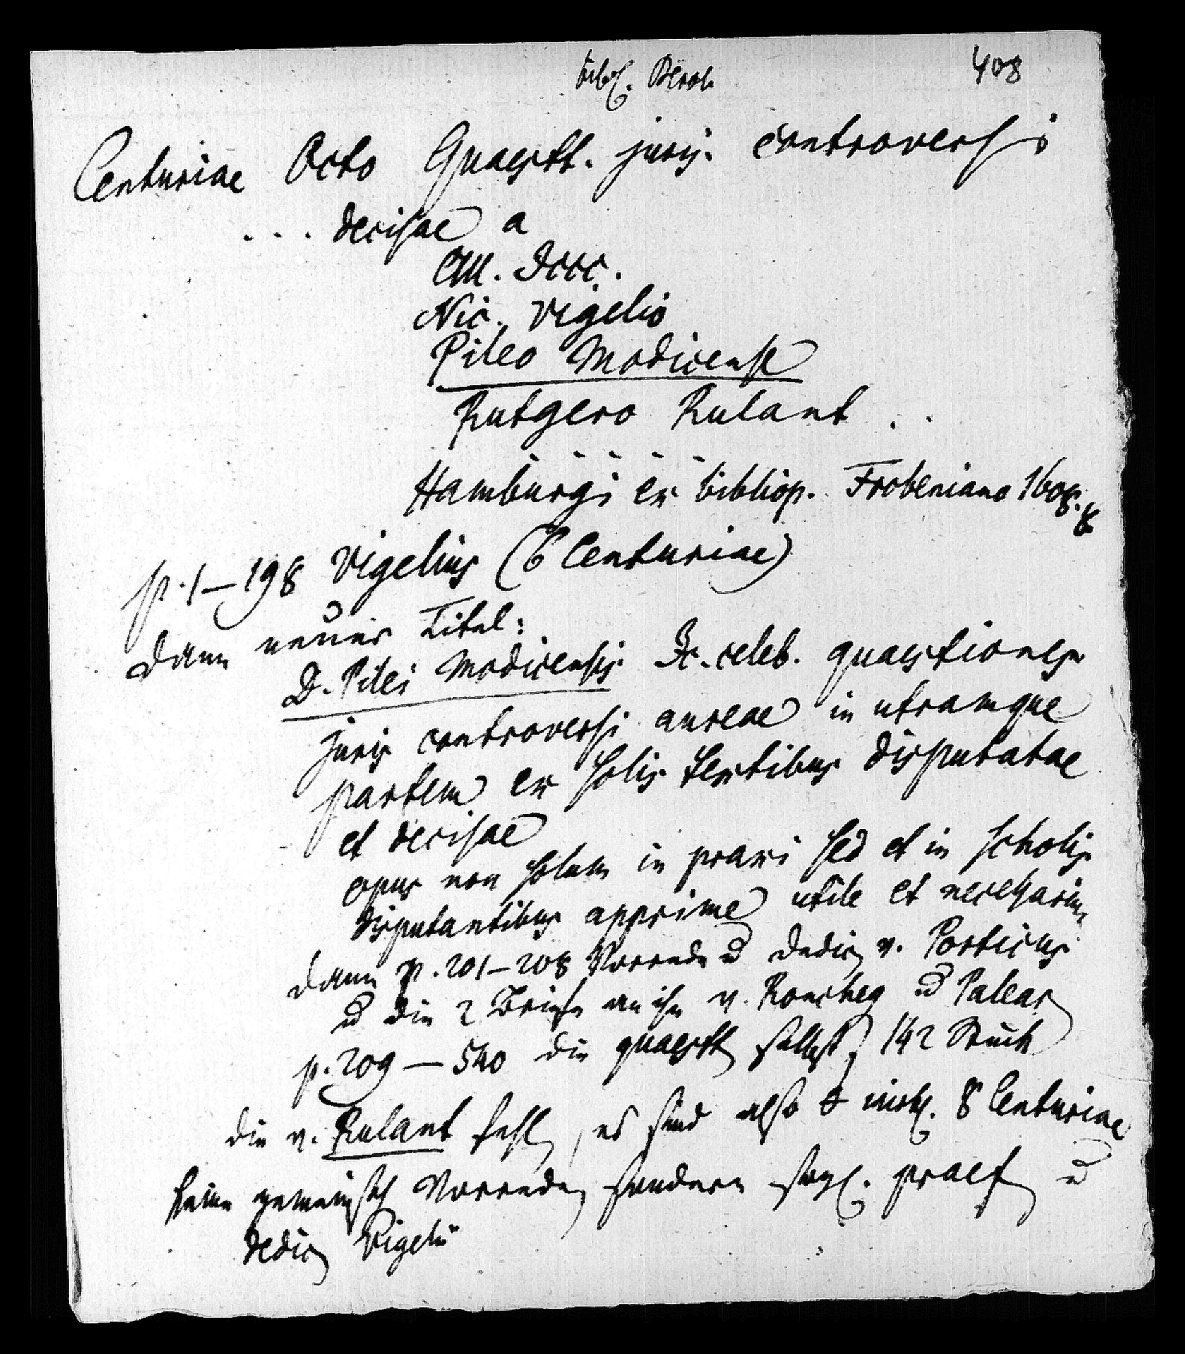 408
Centuriae Octo Quaestt. juris. controversi
... decisae a
Cll. Iccc.
Nic. Vigelio
Pileo Modicense
Rutgero Rulant ..
Hamburgi ex bibliop. Frobeniano 1608. 8
p. 1–198 Vigelius (6 Centuriae)
dann neuer Titel:
D. Pilei Modicensis Ic. celeb. quaestiones
juris controversi aureae in utramque
partem ex solis textibus disputatae
et decisae
opus non solum in praxi sed et in scholis
disputantibus apprime utile et necessarium
dann p. 201–208 Vorrede u dedic v. Porticus
u die 2 Briefe an ihn v. u Palear
p. 209–540 die quaestt selbst, 142 Stück
die v. Rulant fehlt, es sind also nicht 8 Centuriae
keine gemeinsch Vorrede, sondern praef u
dedic Vigelii